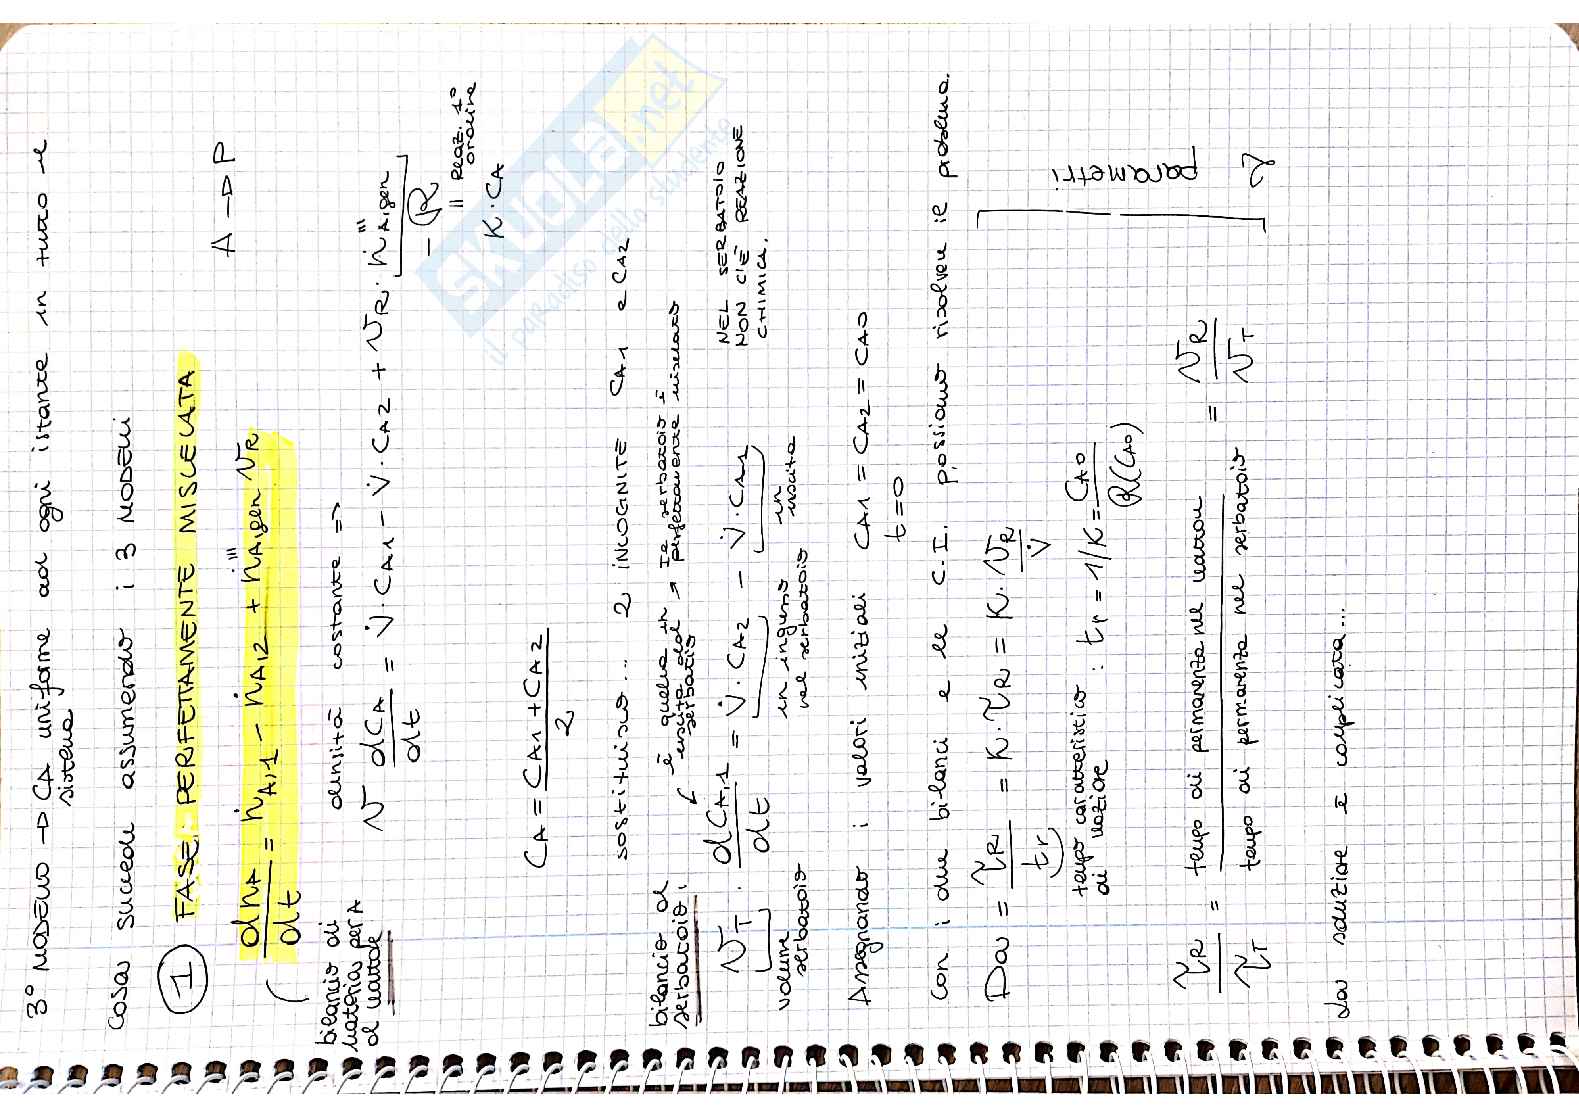 3° MODELLO → CA uniforme ad ogni istante in tutto il
sistema
Cosa succede assumendo i 3 MODELLI
① FASE: PERFETTAMENTE MISCELATA
A → P
( dnA/dt = ṅA,1 - ṅA,2 + ṅ'''A,gen VR
densità costante =>
bilancio di
materia per A
al reattore
V dCA/dt = V̇·CA1 - V̇·CA2 + VR·ṅ'''A,gen
- R
= REAZ. 1°
ordine
K·CA
CA = (CA1 + CA2)/2
sostituisco... 2 INCOGNITE CA1 e CA2
bilancio al
serbatoio.
è quella in
uscita dal
serbatoio
Il serbatoio è
perfettamente miscelato
VT · dCA,1/dt = V̇·CA2 - V̇·CA1
volume
serbatoio
in ingresso
nel serbatoio
in
uscita
NEL SERBATOIO
NON C'È REAZIONE
CHIMICA.
Assegnando i valori iniziali CA1 = CA2 = CA0
t=0
con i due bilanci e le C.I. possiamo risolvere il problema.
Da = τR/tr = K·τR = K·VR/V̇
tempo caratteristico
di reazione : tr = 1/K = CA0/R(CA0)
τR/τT = tempo di permanenza nel reattore/tempo di permanenza nel serbatoio = VR/VT
2
parametri
La soluzione è complicata...
SKUOLA.net
il paradiso dello studente